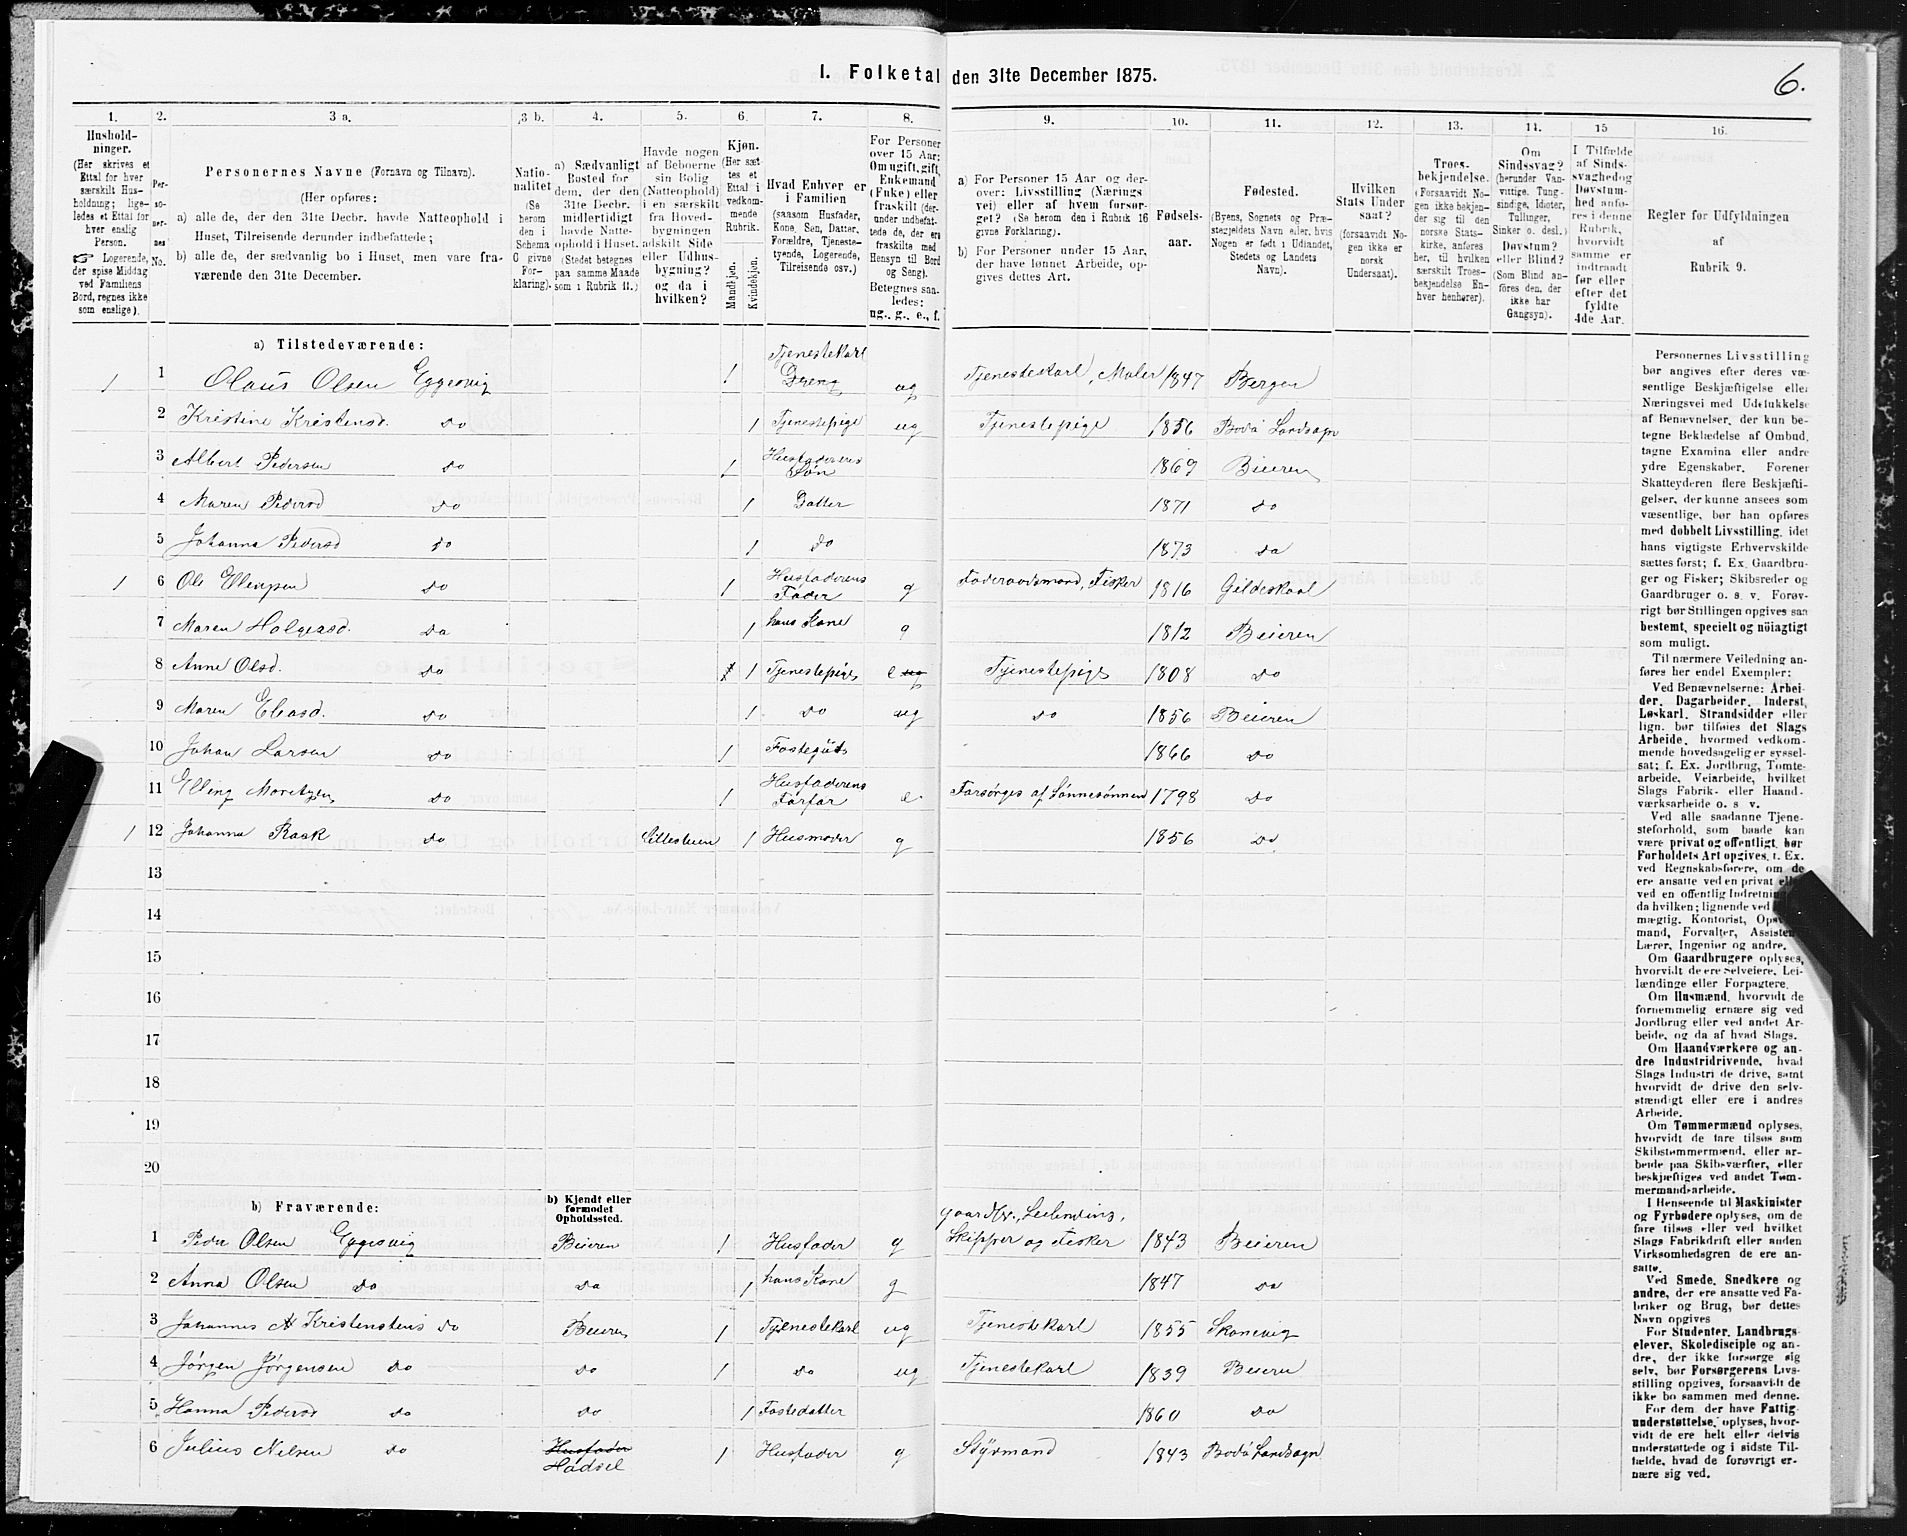 1. Folketal den 31te December 1875.
6.
1. 2. 3 a. 3 b. 4. 5. 6. 7. 8. 9. 10. 11. 12. 13. 14. 15 16.
Hushold-
ninger.
(Her skrives et
Ettal for hver
særskilt Hus-
holdning; lige-
ledes et Ettal for
hver enslig
Person.
Logerende,
der spise Middag
ved Familiens
Bord, regnes ikke
som enslige).
Per-
so-
ner-
nes
No.
Personernes Navne (Fornavn og Tilnavn).
(Her opføres:
a) alle de, der den 31te Decbr. havde Natteophold i
Huset, Tilreisende derunder indbefattede;
b) alle de, der sædvanlig bo i Huset, men vare fra-
værende den 31te December.
Natio-
nalitet
(Se
herom
den i
Schema
C givne
For-
klaring).
a) Sædvanligt
Bosted for
dem, der den
31te Decbr.
midlertidigt
havde Natte-
ophold i Huset.
(Stedet betegnes
paa samme Maade
som i Rubrik 11.)
Havde nogen
af Beboerne
sin Bolig
(Natteophold)
i en særskilt
fra Hoved-
bygningen
adskilt Side
eller Udhus-
bygning?
og da i
hvilken?
Kjøn.
(Her sæt-
tes et
Ettal i
vedkom-
mende
Rubrik.
Mandkjøn.
Kvindekjøn.
Hvad Enhver er
i Familien
(saasom Husfader,
Kone, Søn, Datter,
Forældre, Tjeneste-
tyende, Logerende,
Tilreisende osv.)
For Personer
over 15 Aar:
Om ugift, gift,
Enkemand
(Enke) eller
fraskilt (der-
under indbefat-
tede de, der ere
fraskilte med
Hensyn til Bord
og Seng).
Betegnes saa-
ledes:
ug., g., e., f.
a) For Personer 15 Aar og der-
over: Livsstilling (Nærings
vei) eller af hvem forsør-
get? (Se herom den i Rubrik 16
givne Forklaring).
b) For Personer under 15 Aar,
der have lønnet Arbeide, op-
gives dettes Art.
Fødsels-
aar.
Fødested.
(Byens, Sognets og Præ-
stegjeldets Navn eller, hvis
Nogen er født i Udlandet,
Stedets og Landets
Navn).
Hvilken
Stats Under
saat?
(forsaavidt No-
gen ikke er
norsk
Undersaat).
Troes-
bekjendelse.
(Forsaavidt No-
gen ikke bekjen-
der sig til den
norske Stats-
kirke, anføres
her, til hvilken
særskilt Troes-
bekjendelse En-
hver henhører).
Om
Sindssvag?
(herunder Van-
vittige, Tung-
sindige, Idioter,
Tullinger,
Sinker o. desl.)
Døvstum?
eller Blind?
(Som Blind an-
føres den, der
ikke har
Gangsyn).
I Tilfælde
af Sinds-
svaghed og
Døvstum-
hed anfø-
res i denne
Rubrik,
hvorvidt
samme er
indtraadt
før eller
efter det
fyldte
4de Aar.
Regler for Udfyldningen
af
Rubrik 9.
a) Tilstedeværende:
1 1 Olaus Olsen Eggesvig 1 Tjenestekarl Dreng ug Tjenestekarl, Maler 1847 Bergen
2 Kristine Kristensd. Do 1 Tjenestepige ug Tjenestepige 1856 Bodø Landsogn
3 Albert Pedersen Do 1 Husfaderens Søn 1869 Beieren
4 Maren Pedersd Do 1 Datter 1871 Do
5 Johanna Pedersd Do 1 Do 1873 Do
1 6 Ole Ellingsen Do 1 Husfaderens Fader g Føderaadsmand, Fisker 1816 Gildeskaal
7 Maren Holgersd. Do 1 hans Kone g 1812 Beieren
8 Anne Olsd. Do 1 Tjenestepige e ug Tjenestepige 1808 Do
9 Maren Eliasd. Do 1 Do ug Do 1856 Beieren
10 Johan Larsen Do 1 1866 Do
11 Elling Do 1 Husfaderens Farfar e Forsørges af Sønnesønnen 1798 Do
1 12 Johanna Raak Do Lillestuen 1 Husmoder g 1856 Do
13
14
15
16
17
18
19
20
b) Fraværende:
b) Kjendt eller
formodet
Opholdssted.
1 Peder Olsen Eggesvig Beieren 1 Husfader g Gaardbr., Leilending, Skipper og Fisker 1843 Beieren
2 Anna Olsen Do Do 1 hans Kone g 1847 Do
3 Johannes A Kristensens Do Beieren 1 Tjenestekarl ug Tjenestekarl 1855 Skonevig
4 Jørgen Jørgensen Do Do 1 Do ug Tjenestekarl 1839 Beieren
5 Hanna Pedersd Do Do 1 Fostedatter 1860 Do
6 Julius Nilsen Do Husfader Hadsel 1 Husfader g Styrmand 1843 Bodø Landsogn
Personernes Livsstilling
bør angives efter deres væ-
sentlige Beskjæftigelse eller
Næringsvei med Udelukkelse
af Benævnelser, der kun be-
tegne Beklædelse af Ombud,
tagne Examina eller andre
ydre Egenskaber. Forener
Skatteyderen flere Beskjæfti-
gelser, der kunne ansees som
væsentlige, bør han opføres
med dobbelt Livsstilling, idet
hans vigtigste Erhvervskilde
sættes først; f. Ex. Gaardbru-
ger og Fisker; Skibsreder og
Gaardbruger o. s. v. Forøv-
rigt bør Stillingen opgives saa
bestemt, specielt og nöiagtigt
som muligt.
Til nærmere Veiledning an-
føres her endel Exempler:
Ved Benævnelserne: Arbei-
der, Dagarbeider, Inderst,
Løskarl, Strandsidder eller
lign. bør tilføies det Slags
Arbeide, hvormed vedkom-
mende hovedsagelig er syssel-
sat; f. Ex. Jordbrug, Tomte-
arbeide, Veiarbeide, hvilket
Slags Fabrik- eller Haand-
værksarbeide o. s. v.
Ved alle saadanne Tjene-
steforhold, som baade kan
være privat og offentligt, bør
Forholdets Art opgives, t. Ex.
ved Regnskabsførere, om de
ere ansatte ved en privat eller
ved en offentlig Indretning og
da hvilken; lignende ved
mægtig, Kontorist, Opsyns-
mand, Forvalter, Assistent,
Lærer, Ingeniør og andre.
Om Gaardbrugere oplyses,
hvorvidt de ere Selveiere, Lei-
lændinge eller Forpagtere.
Om Husmænd, hvorvidt de
fornemmelig ernære sig ved
Jordbrug eller ved andet Ar-
beide, og da af hvad Slags.
Om Haandværkere og an-
dre Industridrivende, hvad
Slags Industri de drive, samt
hvorvidt de drive den selv-
stændigt eller ere i andres
Arbeide.
Om Tømmermænd oplyses,
hvorvidt de fare tilsøs som
Skibstømmermænd, eller ar-
beide paa Skibsværfter, eller
beskjæftiges ved andet Tøm-
mermandsarbeide.
I Henseende til Maskinister
og Fyrbødere oplyses, om de
fare tilsøs eller ved hvilket
Slags Fabrikdrift eller anden
Virksomhedsgren de ere an-
satte.
Ved Smede, Snedkere og
andre, der ere ansatte ved Fa-
briker og Brug, bør dettes
Navn opgives
For Studenter, Landbrugs-
elever, Skoledisciple og an-
dre, der ikke forsørge sig
selv, bør Forsørgerens Livs-
stilling opgives, forsaavidt de
ikke bo sammen med denne.
For dem, der have Fattig-
understøttelse, oplyses, hvor-
vidt de ere helt eller delvis
understøttede og i sidste Til-
fælde, hvad de forøvrigt er-
nære sig ved.